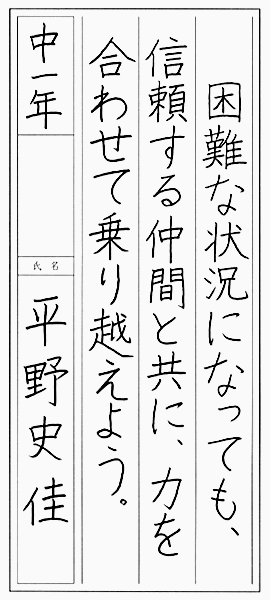 困難な状況になっても、
信頼する仲間と共に、力を
合わせて乗り越えよう。
中一年
氏名
平野史佳